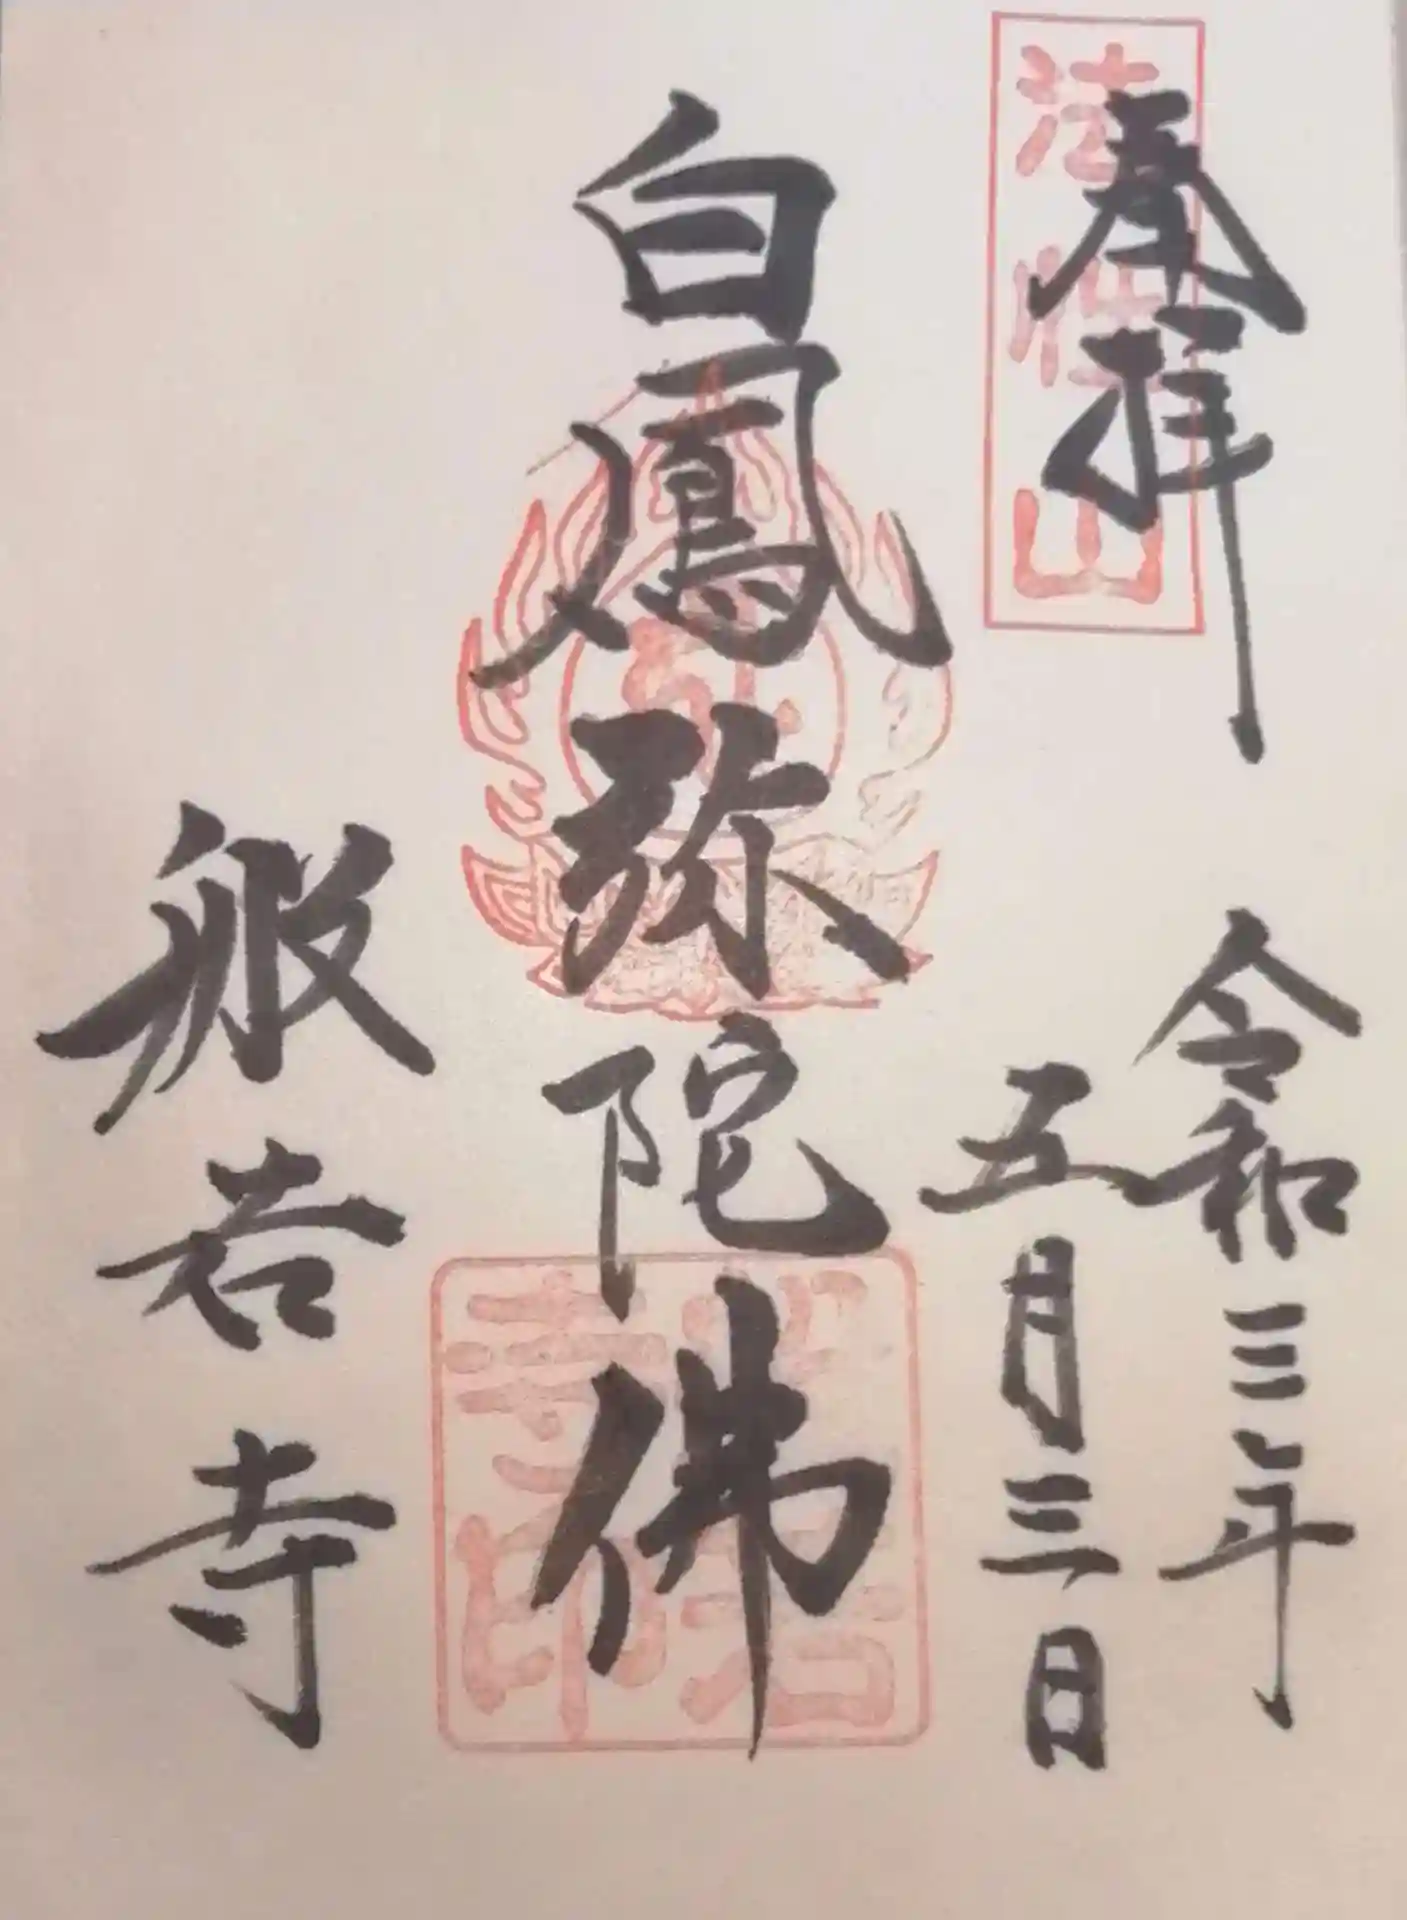 奉拝
法性山
令和三年
五月三日
白鳳弥陀佛
般若寺
般若
寺之印